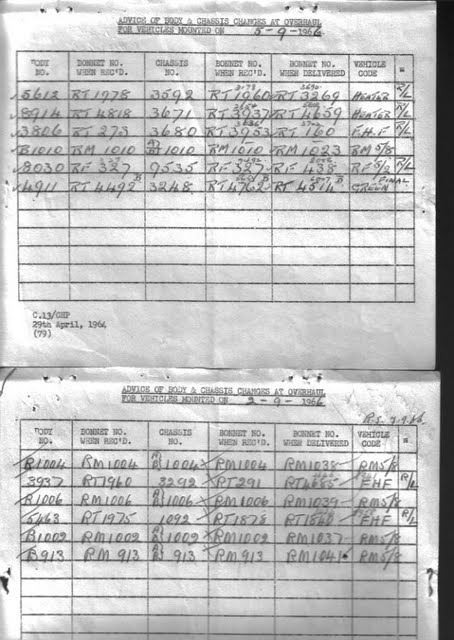 ADVICE OF BODY & CHASSIS CHANGES AT OVERHAUL
FOR VEHICLES MOUNTED ON 5-9-1966
BODY NO. BONNET NO. WHEN REC'D. CHASSIS NO. BONNET NO. WHEN REC'D. BONNET NO. WHEN DELIVERED VEHICLE CODE
5612 RT 1978 3592 RT 1960 RT 3269 HEATER R/L
8914 RT 4818 3671 RT 3937 RT 4659 HEATER R/L
3806 RT 273 3680 RT 3953 RT 160 F.H.F R/L
B1010 RM 1010 1010 RM 1010 RM 1023 RM 5/8
8030 RF 327 9535 RF 327 RF 438 RF 5/2 R/L
4911 RT 4492 3248 RT 4762 RT 4514 GREEN FINAL
C.13/CHP
29th April, 1964
(79)
ADVICE OF BODY & CHASSIS CHANGES AT OVERHAUL
FOR VEHICLES MOUNTED ON 2-9-1966
BODY NO. BONNET NO. WHEN REC'D. CHASSIS NO. BONNET NO. WHEN REC'D. BONNET NO. WHEN DELIVERED VEHICLE CODE
B1004 RM1004 1004 RM1004 RM1038 RM5/8
3937 RT1960 3292 RT291 FHF R/L
B1006 RM1006 1006 RM1006 RM1039 RM5/8
5463 RT1975 1092 RT1878 FHF R/L
B1002 RM1002 1002 RM1002 RM1037 RM5/8
B913 RM 913 913 RM913 RM1041 RM5/8